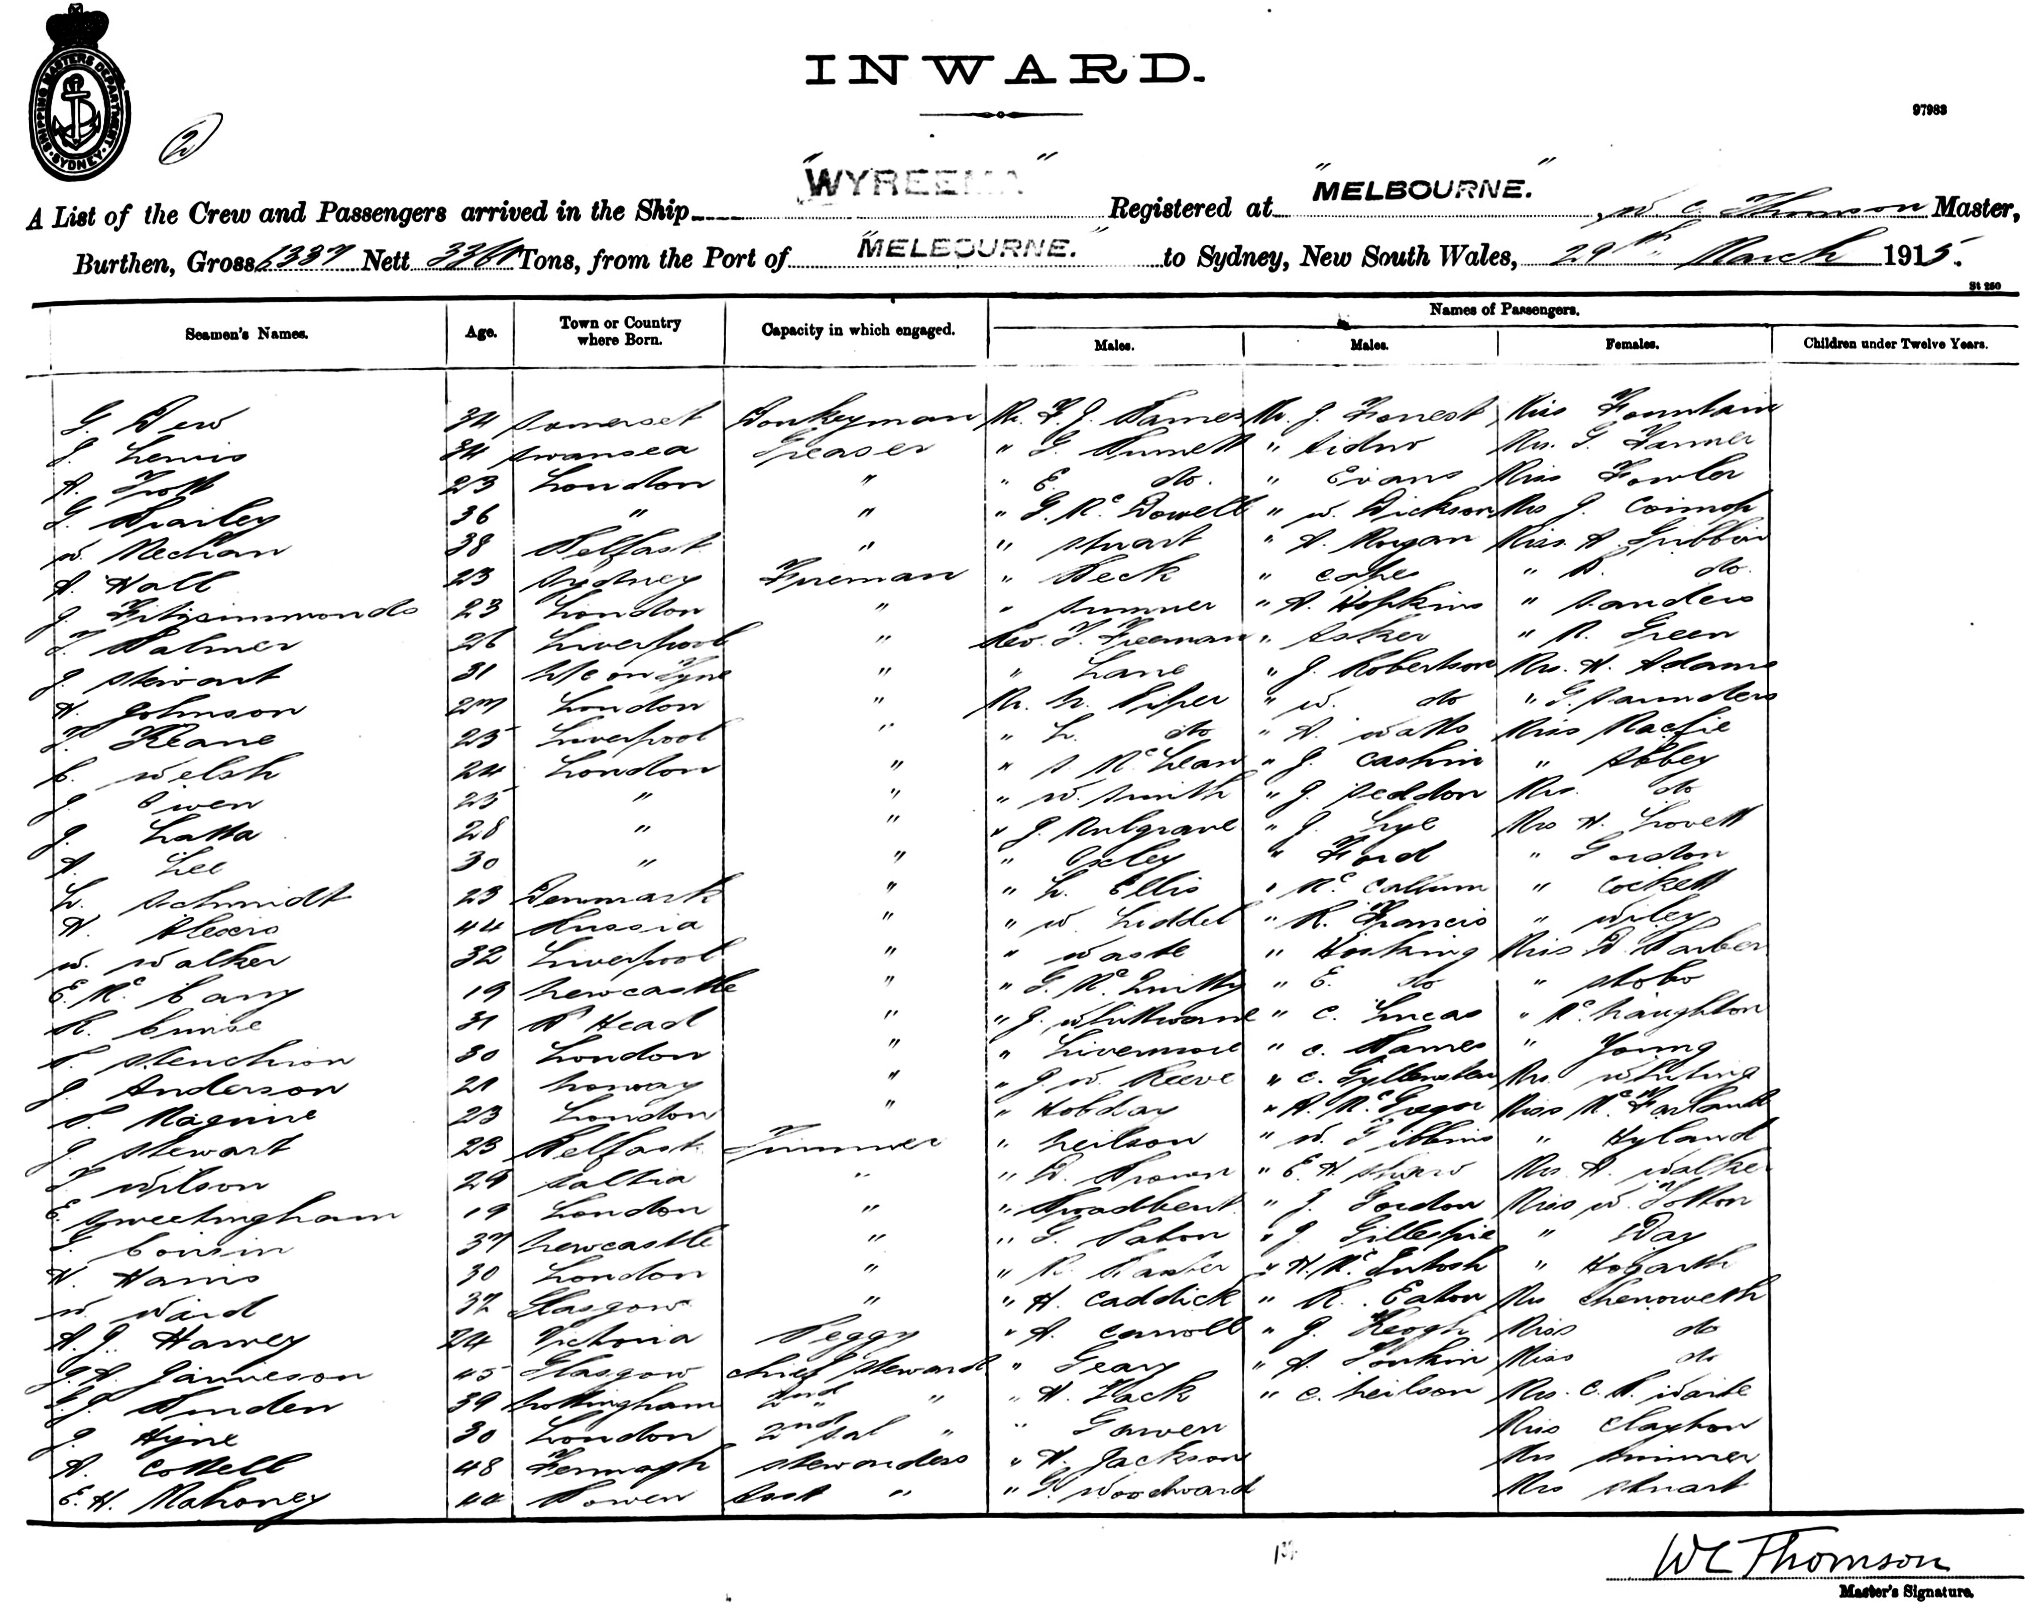 SHIPPING MASTERS DEPARTMENT SYDNEY
INWARD.
97983
2
"WYREEMA" "MELBOURNE."
A List of the Crew and Passengers arrived in the Ship Registered at W C Thomson Master,
Burthen, Gross 6337 Nett Tons, from the Port of "MELBOURNE." to Sydney, New South Wales, 29th March 1915.
St 250
Names of Passengers.
Seamen's Names. Age. Town or Country where Born. Capacity in which engaged. Males. Males. Females. Children under Twelve Years.
G. Dew 34 Somerset Donkeyman Mr. F. J. Barnes Mr. J. Forrest Miss Fountain
J. Lewis 34 Swansea Greaser " G. Burnett " Mrs. G. Farmer
A. Trott 23 London " " E. do. " Evans Miss Fowler
G. Brailey 36 " " " G. McDowell " W. Dickson Mrs J.
W. Mechan 38 Belfast " " Stuart " A. Morgan Miss. A. Gribbin
A. Hall 23 Sydney Fireman " Beck " Copes " B. do.
J. Fitzsimmonds 23 London " " Sumner " A. Hopkins " Sanders
T. Palmer 26 Liverpool " Rev. T. Freeman " Asker " R. Green
J. Stewart 31 N/C on Tyne " " Lane " J. Robertson Mrs. H. Adams
H. Johnson 27 London " Mr. W. Piper " W. do " G. Saunders
T. Keane 25 Liverpool " " L. do " A. Watts Miss Macfie
C. Welsh 24 London " " S McLean " J. Cashin " Abbey
J. Owen 25 " " " W. Smith " J. Seddon Mrs. do
J. Latta 28 " " " J. Mulgrave " J. Lye Mrs H. Lovett
A. Lee 30 " " " Oxley " Ford " Gordon
L. Schmidt 23 Denmark " " L. Ellis " McCallum " Cockett
N. Alexis 44 Russia " " W. Liddel " R. Francis " Wiley
W. Walker 32 Liverpool " " Waste " Hosking Miss D. Barber
E. McCarry 19 Newcastle " " G. McQuitty " E. do " Stobo
R. 31 B'Head " " J. Whittworth " C. Lucas " McNaughton
P. Stenchion 30 London " " Livermore " C. Barnes " Young
J. Anderson 21 Norway " " J. W. Reeve " C. Gyllensten Mrs. Whiting
P. Maguire 23 London " " Hobday " A. McGregor Miss McFarland
J. Stewart 23 Belfast Trimmer " Neilson " W. Gibbins " Hyland
T. Wilson 29 " " D. Brown " E. H Shaw Mrs. A. Walker
E. Sweetingham 19 London " " Broadbent. " J. Gordon Miss W. Totton
G. Cousin 37 Newcastle " " G. Paton " J. Gillespie " Day
H. Harris 30 London " " R. Baxter " H. McIntosh " Hogarth
W. Ward 32 Glasgow " " H. Caddick " R. Eaton Mrs Chenoweth
A. J. Harvey 24 Victoria Peggy " A. Carroll " J. Keogh Miss do
J. A. Jamieson 45 Glasgow Chief Steward " Geary " A. Tonkin Miss do
G. J. Binden 39 Nottingham 2nd " " H. Flack " C. Neilson Mrs. C. B. Waite
J. Hyne 30 London 2nd Sal " " Gawen Miss Clayton
A. Cottell 48 Stewardess " A. Jackson Mrs Summer
E. H. Mahoney 40 Bowen Asst " " G. Woodward Mrs Stuart
WC Thomson
Master's Signature.